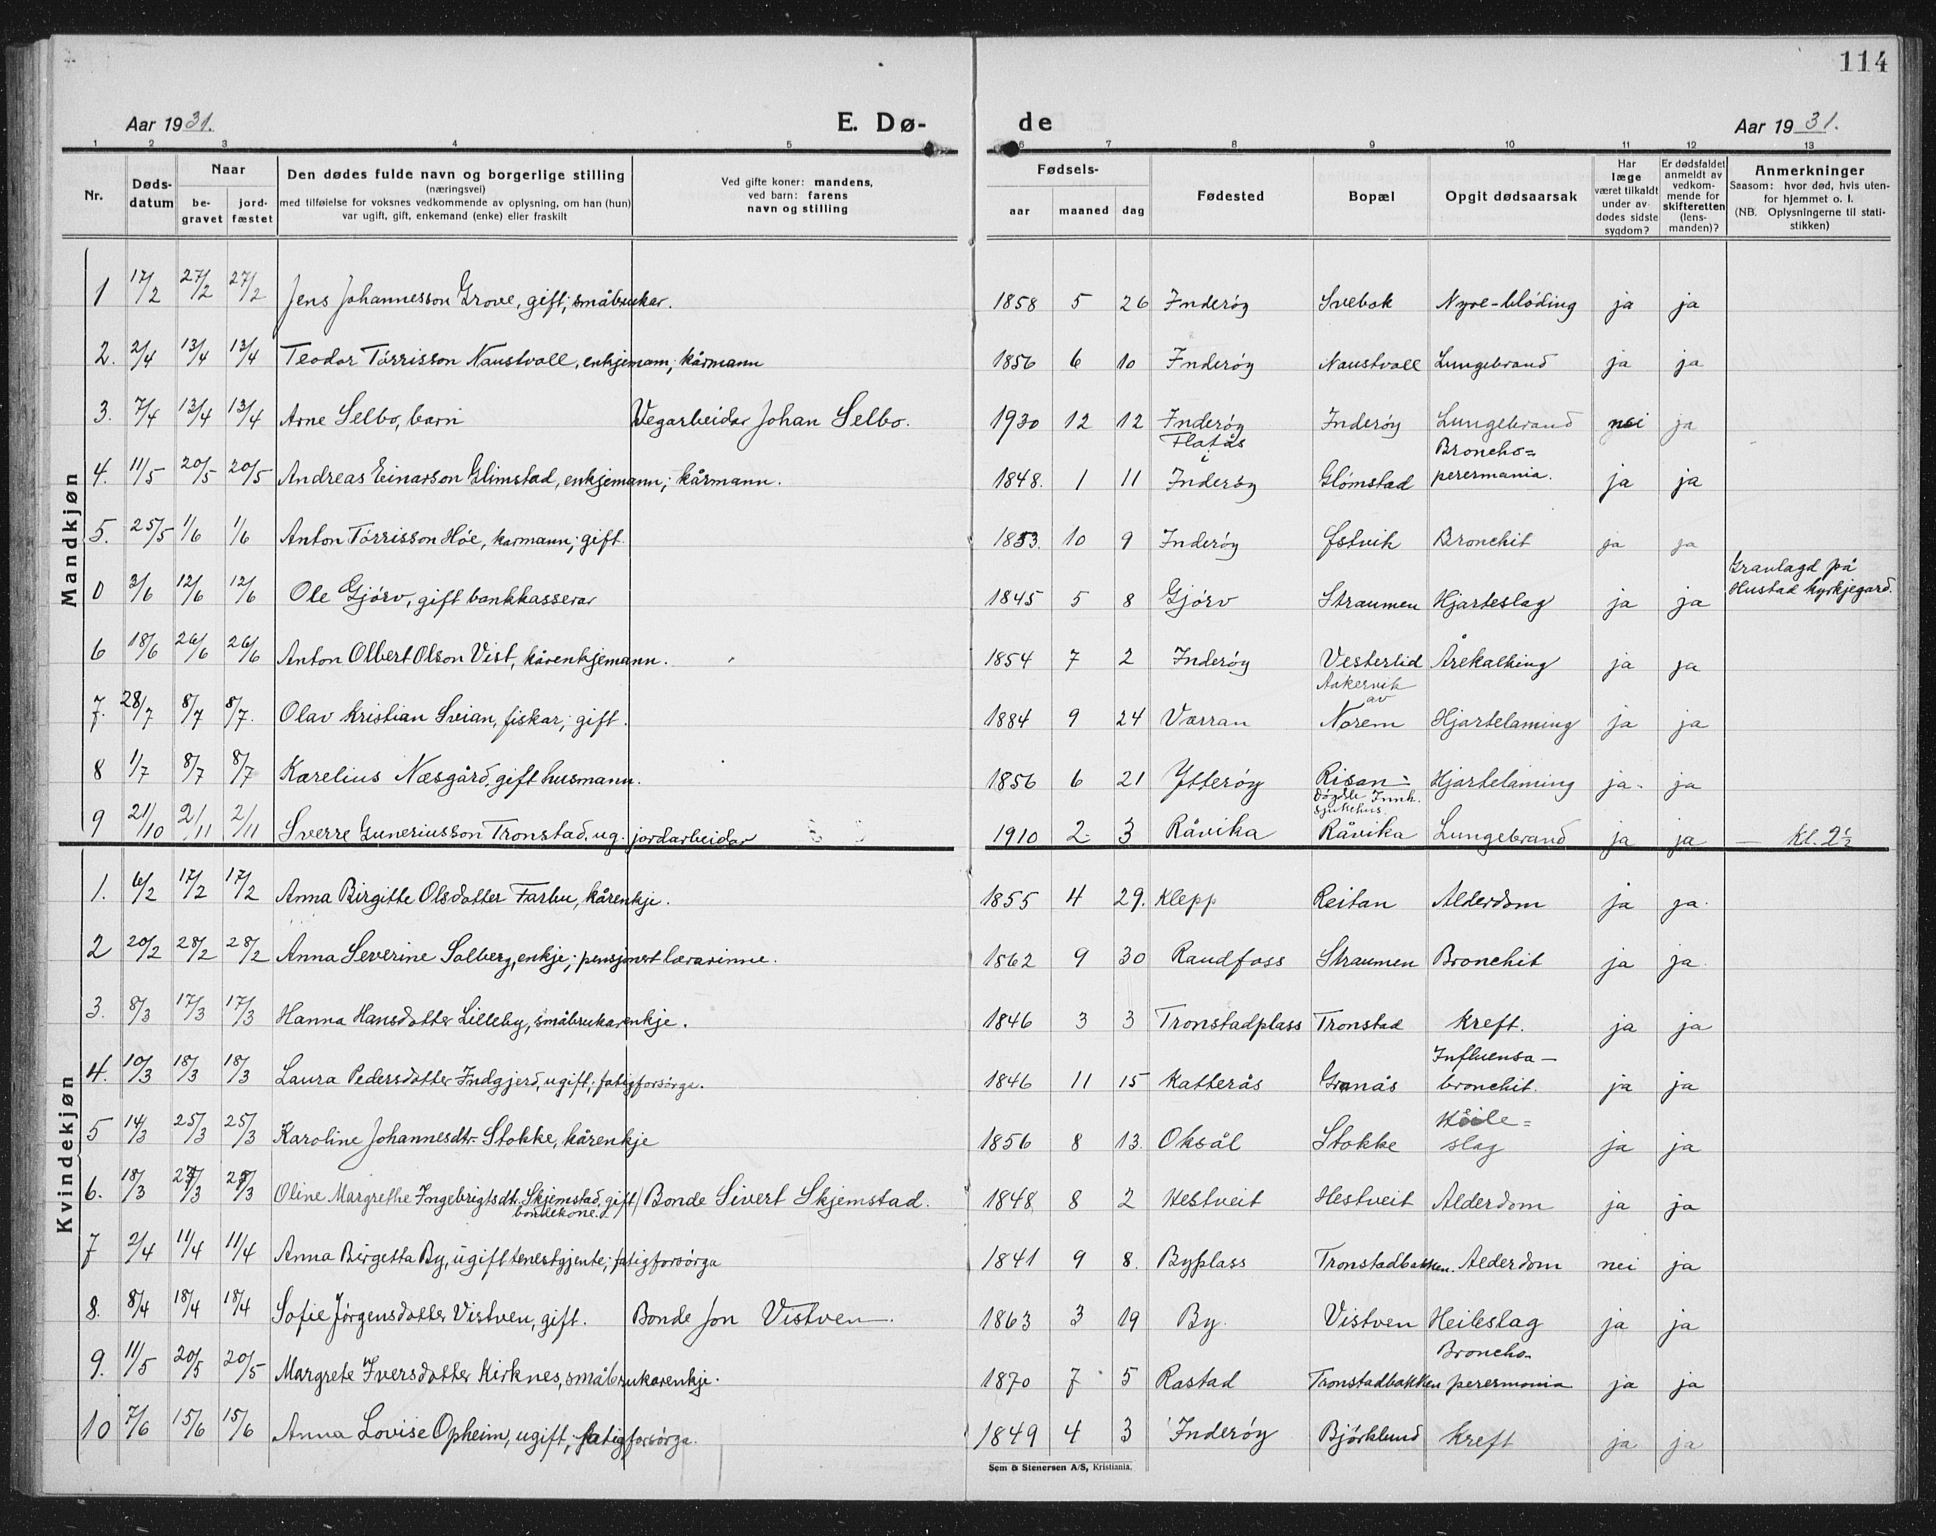 114
Aar 1931.
E. Dø-
de
Aar 1931.
1 2 3 4 5 6 7 8 9 10 11 12 13
Nr.
Døds-
datum
Naar
be-
gravet
jord-
fæstet
Den dødes fulde navn og borgerlige stilling
(næringsvei)
med tilføielse for voksnes vedkommende av oplysning, om han (hun)
var ugift, gift, enkemand (enke) eller fraskilt
Ved gifte koner: mandens,
ved barn: farens
navn og stilling
Fødsels-
aar maaned dag
Fødested
Bopæl
Opgit dødsaarsak
Har
læge
været tilkaldt
under av-
dødes sidste
sygdom?
Er dødsfaldet
anmeldt av
vedkom-
mende for
skifteretten
(lens-
manden)?
Anmerkninger
Saasom: hvor død, hvis uten-
for hjemmet o. l.
(NB. Oplysningerne til stati-
stikken)
Mandkjøn
1 17/2 27/2 27/2 Jens Johannesson Grove, gift; småbrukar. 1858 5 26 Inderøy Svebak Nyre-bløding ja ja
2. 2/4 13/4 13/4 Teodor Tørrisson Naustvoll, enkjemann; kårmann 1856 6 10 Inderøy Naustvoll Lungebrand ja ja
3. 7/4 13/4 13/4 Arne Selbo, barn Vegarbeidar Johan Selbo. 1930 12 12 Inderøy Inderøy Lungebrand nei ja
Flatås
i
Broncho=
4. 11/5 20/5 20/5 Andreas Einarson Glimstad, enkjemann; kårmann. 1848. 1 11 Inderøy Glømstad perermania. ja ja
5. 25/5 1/6 1/6 Anton Tørrisson Høe, karmann; gift. 1853. 10 9 Inderøy Østvik Bronchit ja ja
Gravlagd på
Hustad kyrkjegard.
0 3/6 12/6 12/6 Ole Gjørv, gift bankkasserar 1845 5 8 Gjørv Straumen Hjarteslag ja ja
6 18/6 26/6 26/6 Anton Olbert Olson Vist, kårenkjemann. 1854 7 2 Inderøy Vesterlid Årekalking ja ja
Aakervik
av
7. 28/7 8/7 8/7. Olav Kristian Sveian, fiskar; gift. 1884 9 24 Værran Norem Hjartelaming ja ja
8 1/7 8/7 8/7 Karelius Næsgård, gift husmann. 1856 6 21 Ytterøy Risan Hjartelaming ja. ja
Døydde Innh.
sjukehus
9 21/10 2/11 2/11 Sverre Guneriusson Tronstad. ug. jordarbeidar 1910 2. 3 Råvika Råvika Lungebrand ja ja — Kl. 2½
Kvindekjøn
1. 6/2 17/2 17/2 Anna Birgitte Olsdatter Farbu, kårenkje. 1855 4 29. Klepp Reitan Alderdom ja ja.
2 20/2 28/2 28/2 Anna Severine Solberg, enkje; pensjonert lærarinne. 1862 9 30 Raudfoss Straumen Bronchit ja ja.
3. 8/3 17/3 17/3 Hanna Hansdatter Lilleby, småbrukarenkje. 1846 3 3 Tronstadplass Tronstad Kreft. ja ja
Influensa-
4. 10/3 18/3 18/3 Laura Pedersdatter Indgjerd, ugift; fatigforsørga. 1846 11 15 Katterås Granås bronchit. ja ja
5 14/3 25/3 25/3 Karoline Johannesdtr Stokke, kårenkje 1856 8 13. Oksål Stokke slag ja ja
6. 18/3 Oline Margrethe Ingebrigtsdt. Skjemstad, gift Bonde Sivert Skjemstad. 1848. 8 2 Hestveit Hestveit Alderdom ja ja
bondekone.
7 2/4 11/4 11/4 Anna Birgetta By, ugift tenestgjente; fatigforsørga 1841 9 8. Byplass Tronstadbakken. Alderdom nei ja
8. 8/4 18/4 18/4 Sofie Jørgensdatter Vistven, gift. Bonde Jon Vistven 1863 3 19 By. Vistven Heileslag ja ja
Broncho-
9. 11/5 20/5 20/5 Margrete Iversdatter Kirknes, småbrukarenkje. 1870 7 5 Rostad Tronstadbakken perermonia ja ja
10 7/6 15/6 15/6 Anna Lovise Opheim, ugift; fatigforsørga. 1849 4 3 Inderøy Bjørklund Kreft ja ja
Sem & Stenersen A/S, Kristiania.